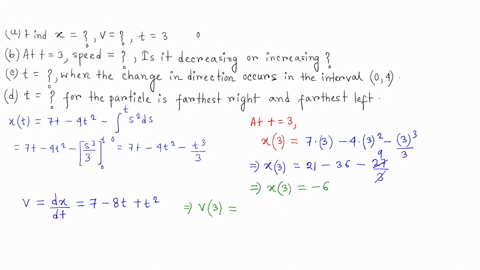 (a) Find x = ?, V = ?, t = 3
(b) At t = 3, speed = ?, Is it decreasing or increasing?
(c) t = ?, when the change in direction occurs in the interval (0, 4).
(d) t = ? for the particle is farthest right and farthest left.
x(t) = 7t - 4t² - ∫₀ᵗ s² ds
= 7t - 4t² - [s³/3]₀ᵗ = 7t - 4t² - t³/3
V = dx/dt = 7 - 8t + t²
At t = 3,
x(3) = 7·(3) - 4·(3)² - (3)³/3
⇒ x(3) = 21 - 36 - 27/3 9
⇒ x(3) = -6
⇒ V(3) =